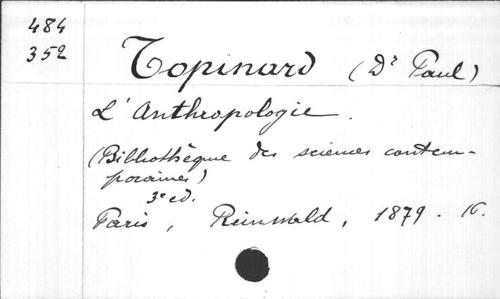 484
352
Topinard (Dr Paul)
L'Anthropologie.
(Bibliothèque des sciences contem-
poraines)
3e ed.
Paris, Reinwald, 1879. 16.